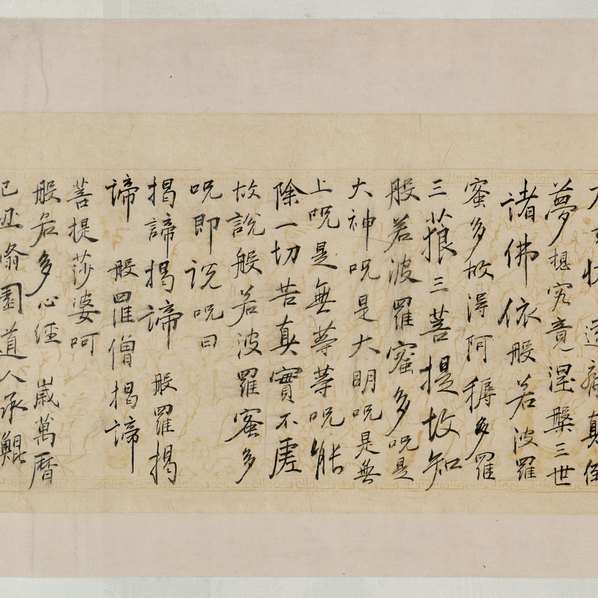 遠離顛倒
夢想究竟涅槃三世
諸佛依般若波羅
蜜多故得阿耨多羅
三藐三菩提故知
般若波羅蜜多呪是
大神呪是大明呪是無
上呪是無等等呪能
除一切苦真實不虛
故說般若波羅蜜多
呪即說呪曰
揭諦揭諦 般羅揭
諦 般羅僧揭諦
菩提莎婆呵
般若多心經 歲萬曆
己丑 園道人承鯤